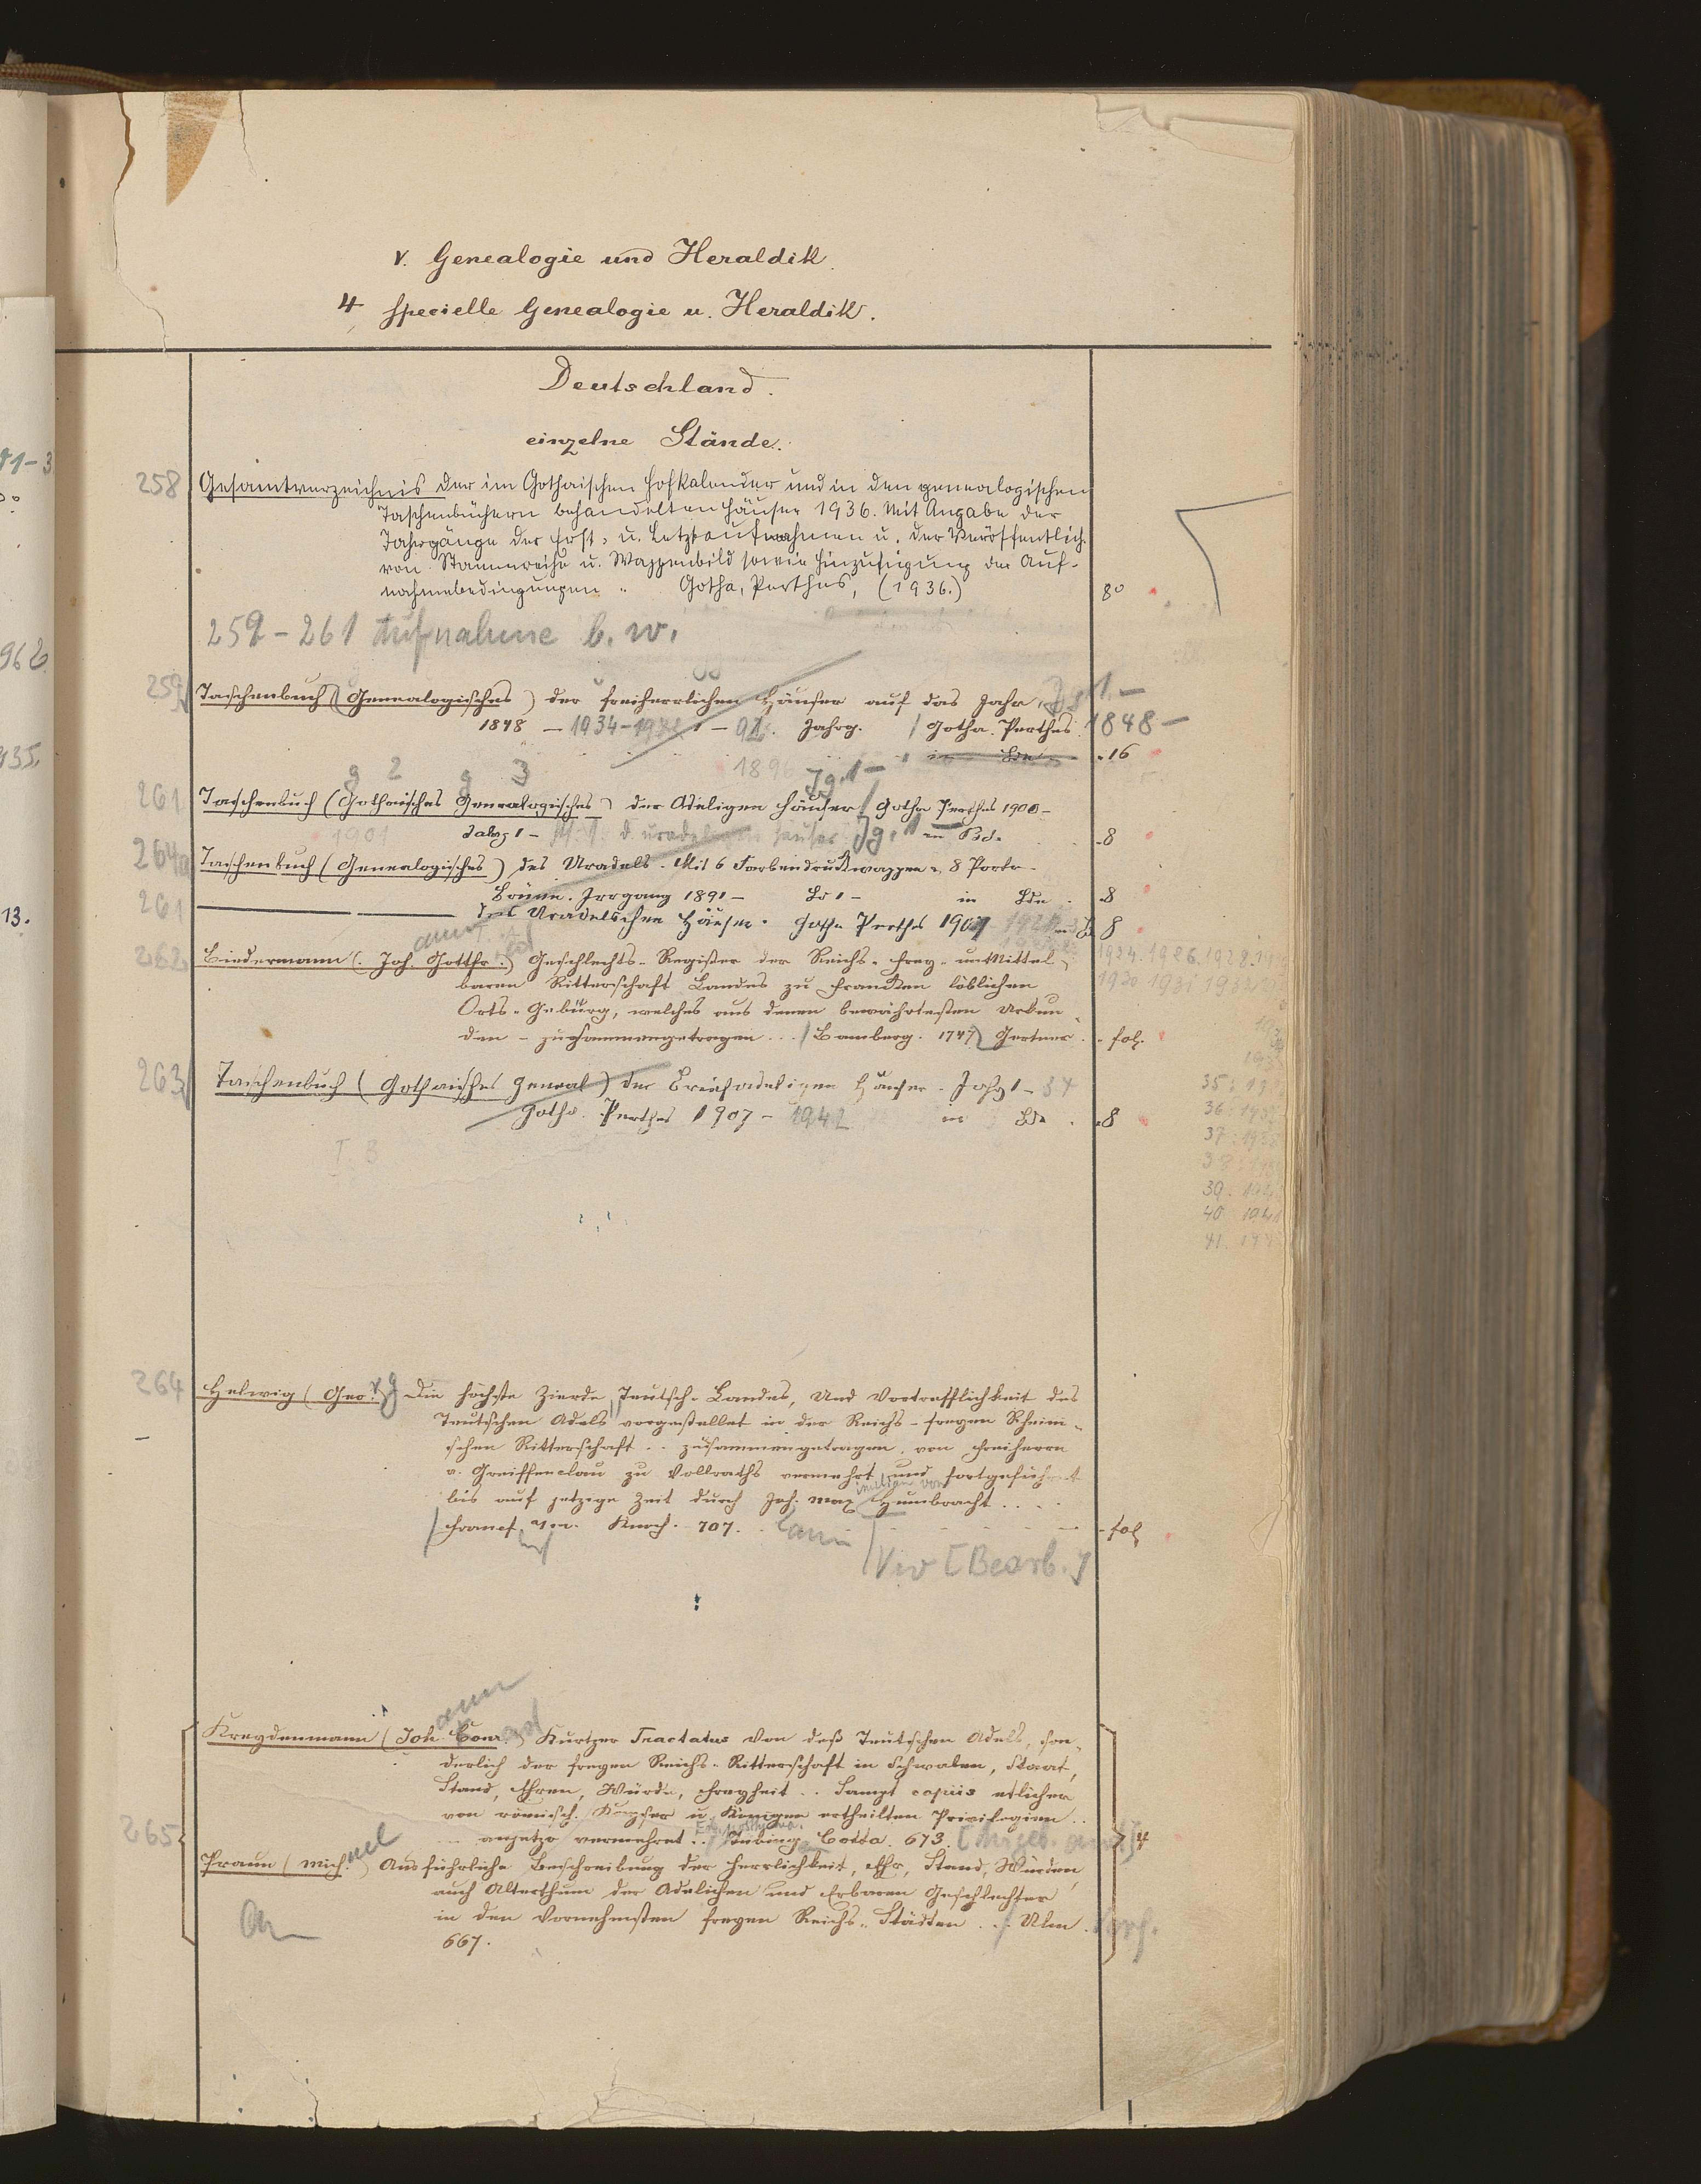 V. Genealogie und Heraldik.
4 specielle Genealogie u. Heraldik.
Deutschland.
einzelne Stände.
258 Gesamtverzeichnis der im Gothaischen Hofkalender und in den genealogischen
Taschenbüchern behandelten Häuser 1936. Mit Angabe der
Jahrgänge der Erst- u. Letztaufnahmen u. der Veröffentlich.
von Stammreihe u. Wappenbild sowie Hinzufügung der Auf-
nahmebedingungen. Gotha, Perthes, (1936.) 8°
259-261 Aufnahme b. w.
259 Taschenbuch (Genealogisches) der freiherrlichen Häuser auf das Jahr Jg 1.-
1848 - 1934- 1 - 92. Jahrg. / Gotha. Perthes. 1848-
in Bdn 16
1896 Jg. 1-
261 Taschenbuch (Gothaisches Genealogisches) der Adeligen Häuser. Gotha Perthes 1900-
1901 Jahrg 1 - d. uradeligen Häuser Jg. 1 in Bd. 8
264a Taschenbuch (Genealogisches) des Uradels. Mit 6 Farbendruckwappen u. 8 Portr.
Brünn. Irrgang 1891- Bd 1- in Bdn. 8
261 der Uradelschen Häuser. Gotha Perthes 1907 8
262 Biedermann (Joh. Gottfr.) Geschlechts-Register der Reichs-Frey-unmittel-
baren Ritterschaft Landes zu Francken löblichen
Orts-Gebürg, welches aus denen bewährtesten Urkun-
den - zusammengetragen ... / Bamberg. 1747 Gertner. fol.
1924. 1926. 1928.
1930 1931 1933
263 Taschenbuch (Gothaisches Geneal) der Briefadeligen Häuser. Jahrg 1-34
Gotha. Perthes 1907-1942 in Bdn. 8
T. B
35:
36:
37:
38:
39:
40:
41.
264 Helwig (Geo.) Die höchste Zierde Teutsch-Landes, Und Vortrefflichkeit des
Teutschen Adels vorgestellet in der Reichs-freyen Rheini-
schen Ritterschaft .. zusammengetragen, von Freiherrn
v. Greiffenclau zu Vollraths vermehrt, und fortgeführet
bis auf jetzige Zeit durch Joh. Max imilian von Humbracht ....
/ Francf. a/m. Knoch. 707. fol
[Bearb.]
Kreydenmann (Joh Conr.) Kurtzer Tractatus Von deß Teutschen Adels, son-
derlich der freyen Reichs-Ritterschaft in Schwaben, Staat,
Stand, Ehren, Würde, Freyheit .. Sampt copiis etlicher
von römisch. Keyser u. Königen ertheilten Privilegien ..
265 anjetzo vermehret .. / Tübing Cotta. 673. 4
Praun (Mich.) Ausführliche Beschreibung der Herrlichkeit, Ehr, Stand, Würden,
auch Alterthum der Adelichen und Erbaren Geschlechter
in den Vornehmsten freyen Reichs-Städten ... / Ulm.
667.